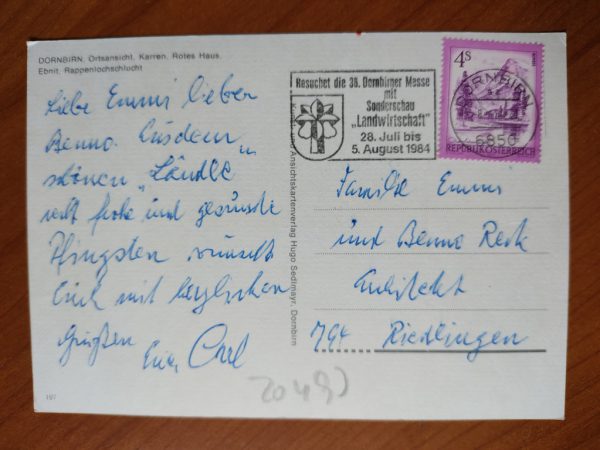 DORNBIRN, Ortsansicht, Karren, Rotes Haus,
Ebnit, Rappenlochschlucht
Liebe Emmi lieber
Benno. Aus dem
schönen „Ländle"
recht frohe und gesunde
Pfingsten wünscht
Euch mit herzlichen
Grüßen
Euer Carl
197
Ansichtskartenverlag Hugo Sedlmayr, Dornbirn
Besuchet die 36. Dornbirner Messe
mit
Sonderschau
„Landwirtschaft"
28. Juli bis
5. August 1984
4S
REPUBLIK ÖSTERREICH
DORNBIRN
6850
Familie Emmi
und Benno
Architekt
Riedlingen